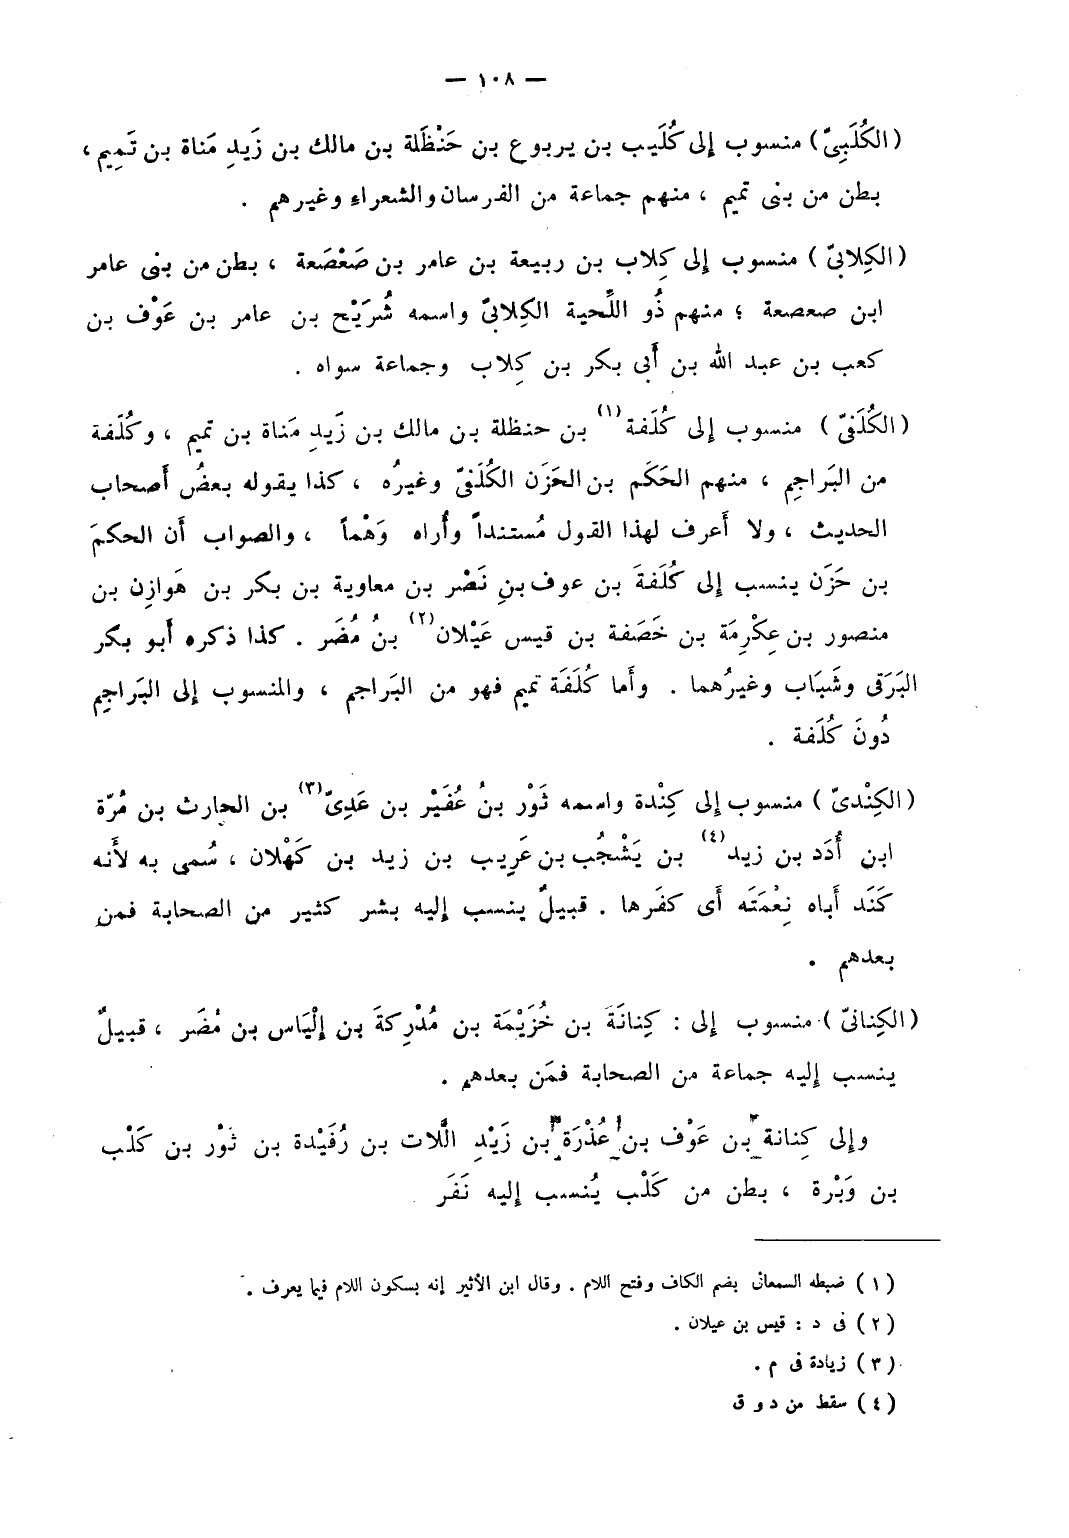 — ١٠٨ —
(الكُلَيبىّ) منسوب إلى كُلَيب بن يربوع بن حَنْظَلة بن مالك بن زَيدِ مَناة بن تَمِيم ،
بطن من بنى تميم ، منهم جماعة من الفرسان والشعراء وغيرهم .
(الكِلابىّ) منسوب إلى كِلاب بن ربيعة بن عامر بن صَعْصَعة ، بطن من بنى عامر
ابن صعصعة ؛ منهم ذُو اللِّحية الكِلابىّ واسمه شُرَيْح بن عامر بن عَوْف بن
كعب بن عبد الله بن أَبى بكر بن كِلاب وجماعة سواه .
(الكُلَفىّ) منسوب إلى كُلَفة(١) بن حنظلة بن مالك بن زَيدِ مَناة بن تميم ، وكُلَفة
من البَراجِم ، منهم الحَكَم بن الحَزَن الكُلَفىّ وغيرُه ، كذا يقوله بعضُ أَصحاب
الحديث ، ولا أَعرف لهذا القول مُستنداً وأُراه وَهْماً ، والصواب أَن الحكمَ
بن حَزَن ينسب إلى كُلَفةَ بن عوف بنِ نَصْر بن معاوية بن بكر بن هَوازِن بن
منصور بن عِكْرِمَة بن خَصَفة بن قيس عَيْلان(٢) بنُ مُضَر . كذا ذكره أَبو بكر
البَرَقى وشَبَاب وغيرُهما . وأَما كُلَفَة تميم فهو من البَراجم ، والمنسوب إلى البَراجِم
دُونَ كُلَفة .
(الكِنْدىّ) منسوب إلى كِنْدة واسمه ثَوْر بنُ عُفَيْر بن عَدِىّ(٣) بن الحارث بن مُرّة
ابن أُدَد بن زيد(٤) بن يَشْجُب بن عَرِيب بن زيد بن كَهْلان ، سُمى به لأَنه
كَنَد أَباه نِعْمَتَه أَى كفَرها . قبيلٌ ينسب إليه بشر كثير من الصحابة فمن
بعدهم .
(الكِنانىّ) منسوب إلى : كِنانَةَ بن خُزَيْمَة بن مُدْرِكةَ بن إِلْيَاس بن مُضَر ، قبيلٌ
ينسب إليه جماعة من الصحابة فمَن بعدهم .
وإلى كِنانة بن عَوْف بن عُذْرَة بن زَيْدِ اللَّات بن رُفَيْدة بن ثَوْر بن كَلْب
بن وَبْرة ، بطن من كَلْب يُنسب إليه نَفَر
(١) ضبطه السمعانى بضم الكاف وفتح اللام . وقال ابن الأثير إنه بسكون اللام فيما يعرف .
(٢) فى د : قيس بن عيلان .
(٣) زيادة فى م .
(٤) سقط من د و ق